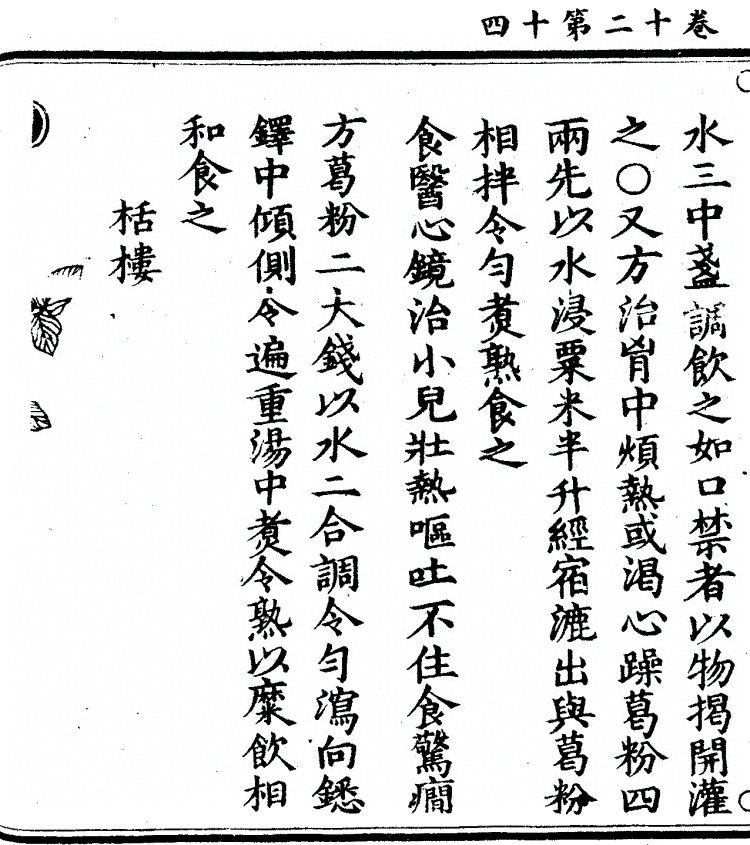 卷十二第十四
水三中盞調飲之如口禁者以物揭開灌
之○又方治胷中煩熱或渴心躁葛粉四
兩先以水浸粟米半升經宿漉出與葛粉
相拌令勻煑熟食之
食醫心鏡治小兒壯熱嘔吐不住食驚癇
方葛粉二大錢以水二合調令勻瀉向鏭
鑼中傾側令遍重湯中煑令熟以糜飲相
和食之
栝樓